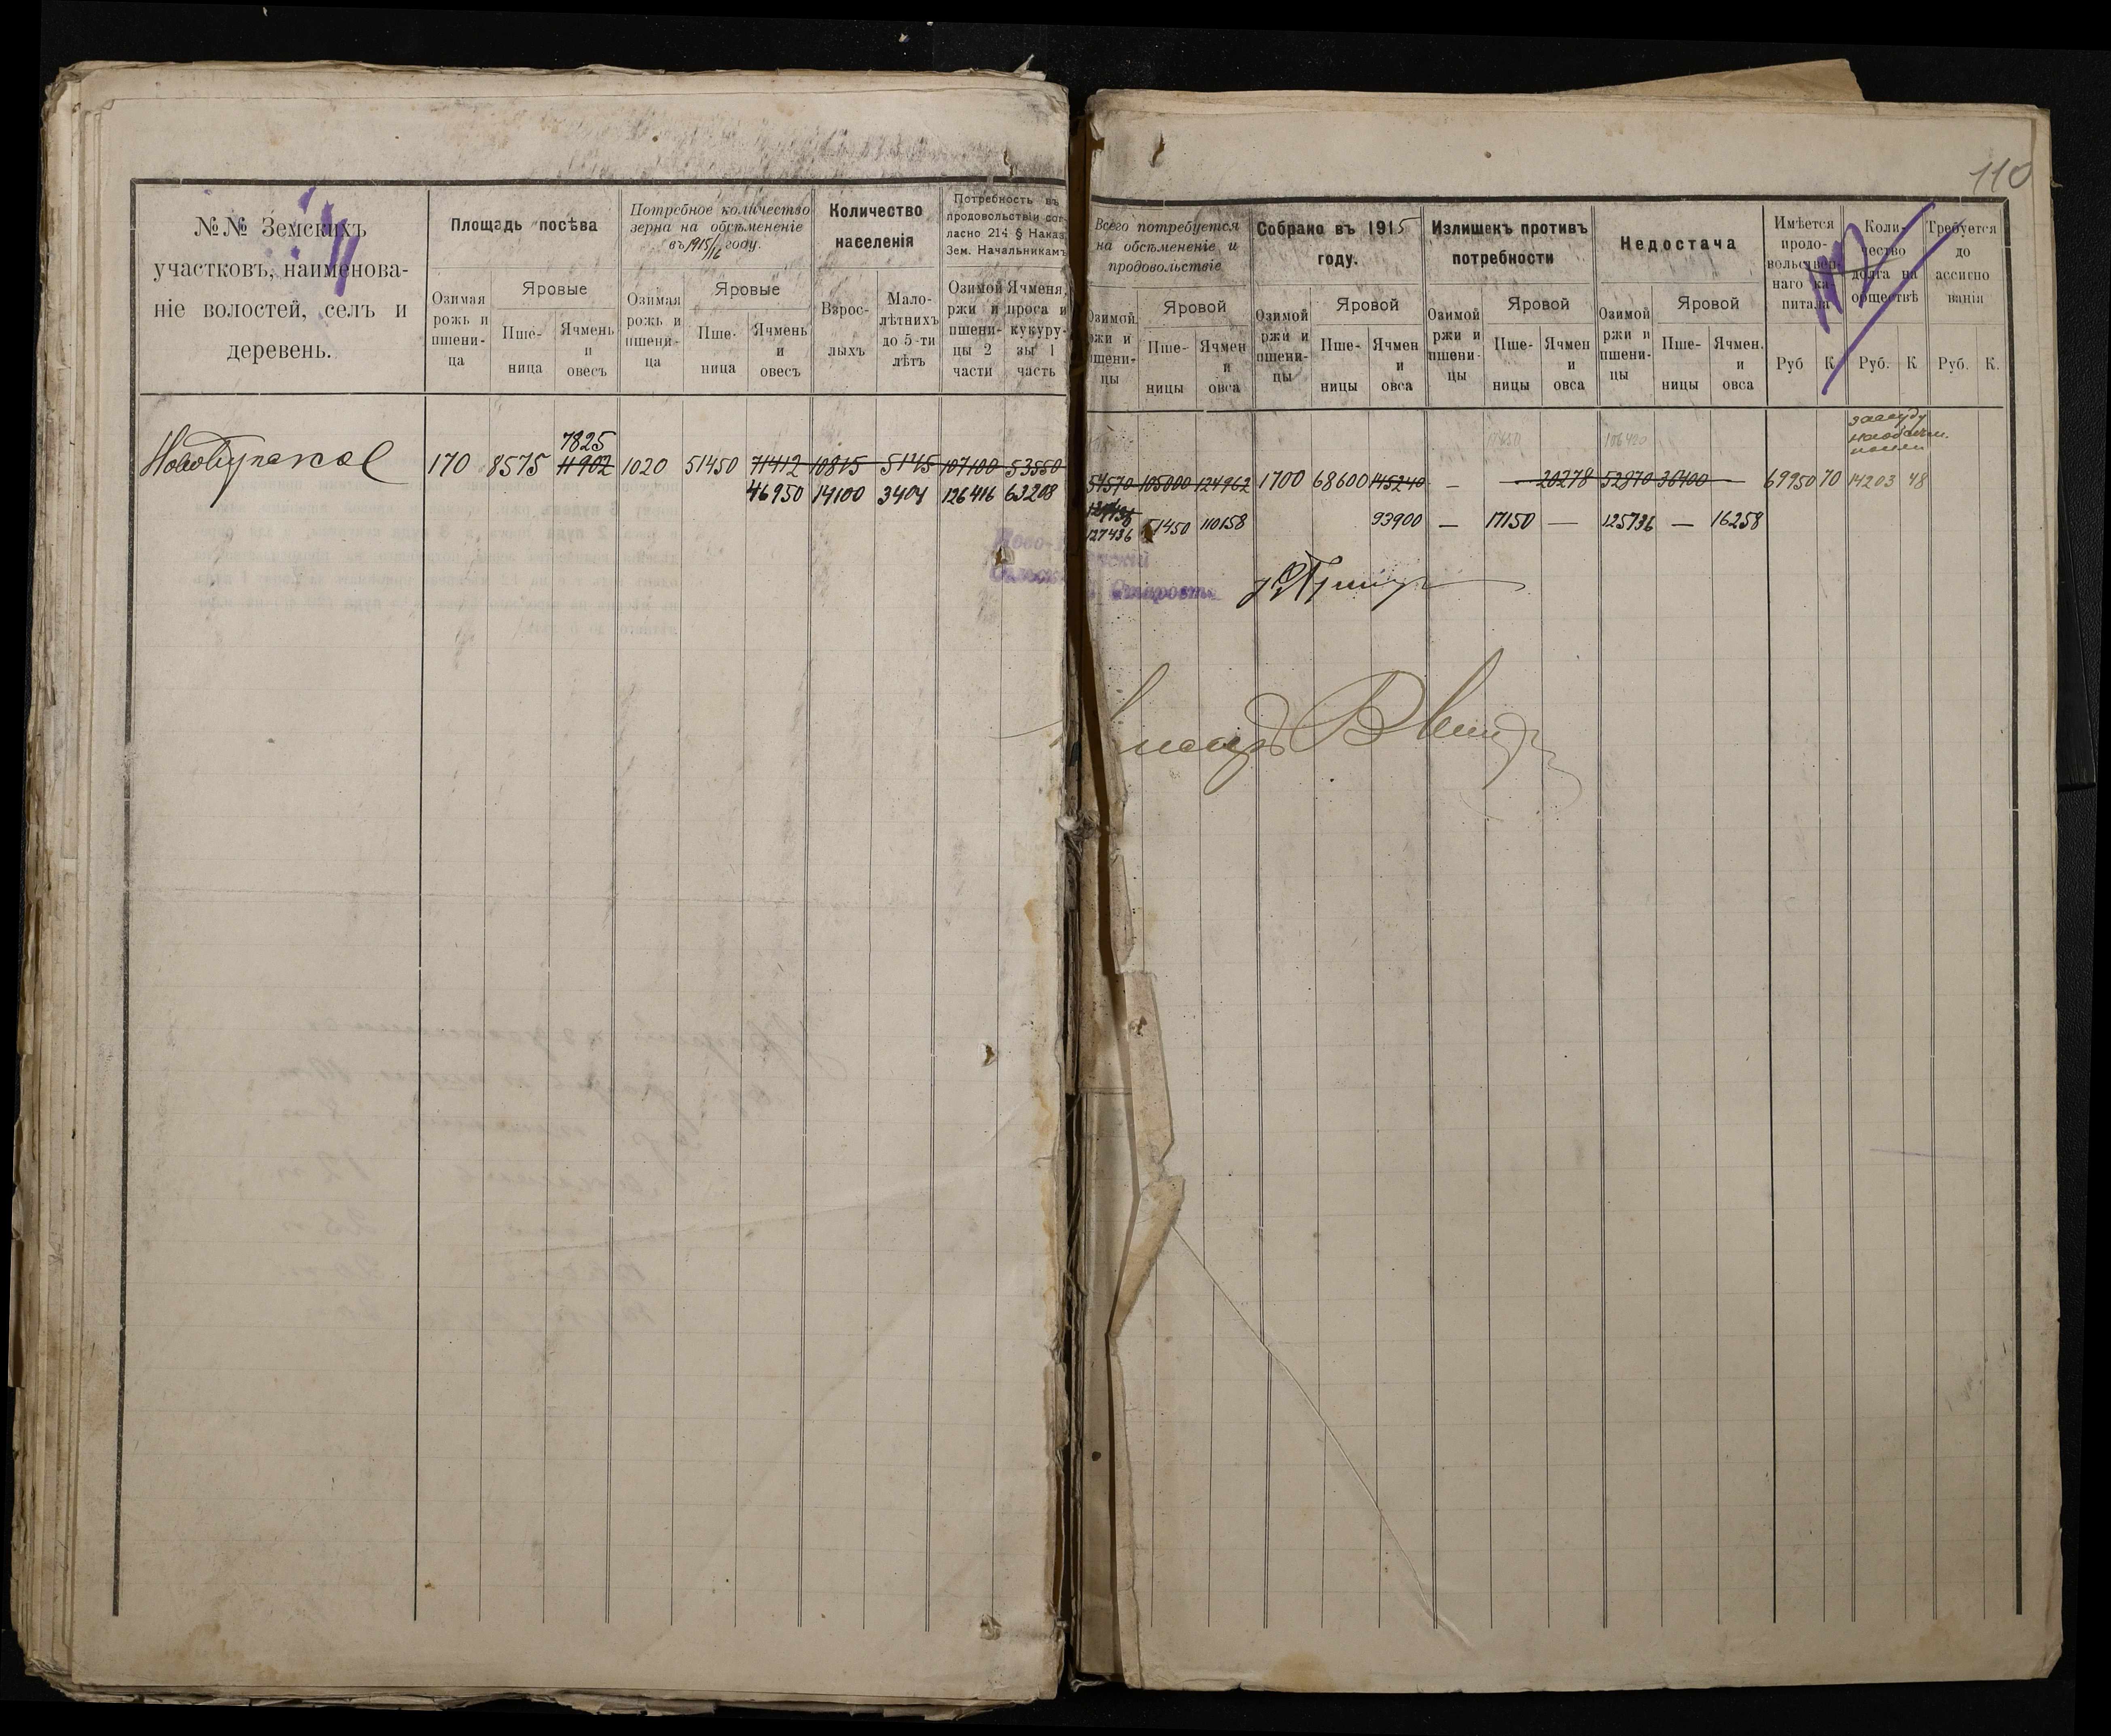 110
№№ Земскихъ
участковъ, наименова-
ніе волостей, селъ и
деревень.
Площадь посѣва
Озимая
рожь и
пшени-
ца
Яровые
Пше-
ница
Ячмень
и
овесъ
Потребное количество
зерна на обсѣмененіе
въ 1915/16 году.
Озимая
рожь и
пшени-
ца
Яровые
Пше-
ница
Ячмень
и
овесъ
Количество
населенія
Взрос-
лыхъ
Мало-
лѣтнихъ
до 5-ти
лѣтъ
Потребность въ
продовольствіи сог-
ласно 214 § Наказ.
Зем. Начальникамъ
Озимой
ржи и
пшени-
цы 2
части
Ячменя,
проса и
кукуру-
зы 1
часть
Всего потребуется
на обсѣмененіе и
продовольствіе
Озимой
ржи и
пшени-
цы
Яровой
Пше-
ницы
Ячмен
и
овса
Собрано въ 1915
году.
Озимой
ржи и
пшени-
цы
Яровой
Пше-
ницы
Ячмен
и
овса
Излишекъ противъ
потребности
Озимой
ржи и
пшени-
цы
Яровой
Пше-
ницы
Ячмен
и
овса
Недостача
Озимой
ржи и
пшени-
цы
Яровой
Пше-
ницы
Ячмен.
и
овса
Имѣется
продо-
вольствен-
наго ка-
питала
Руб К
Коли-
чество
долга на
обществѣ
Руб. К
Требуется
до
ассигно
ванія
Руб. К.
7825
170 8575 11902 1020 51450 71412 10815 5145 107100 53550
46950 14100 3404 126416 63208
54570 105000 124962 1700 68600 145240 — 20278 52870 36400 — 69950 70 14203 48
127436 51450 110158 93900 — 17150 — 125736 — 16258
Сельскій Староста